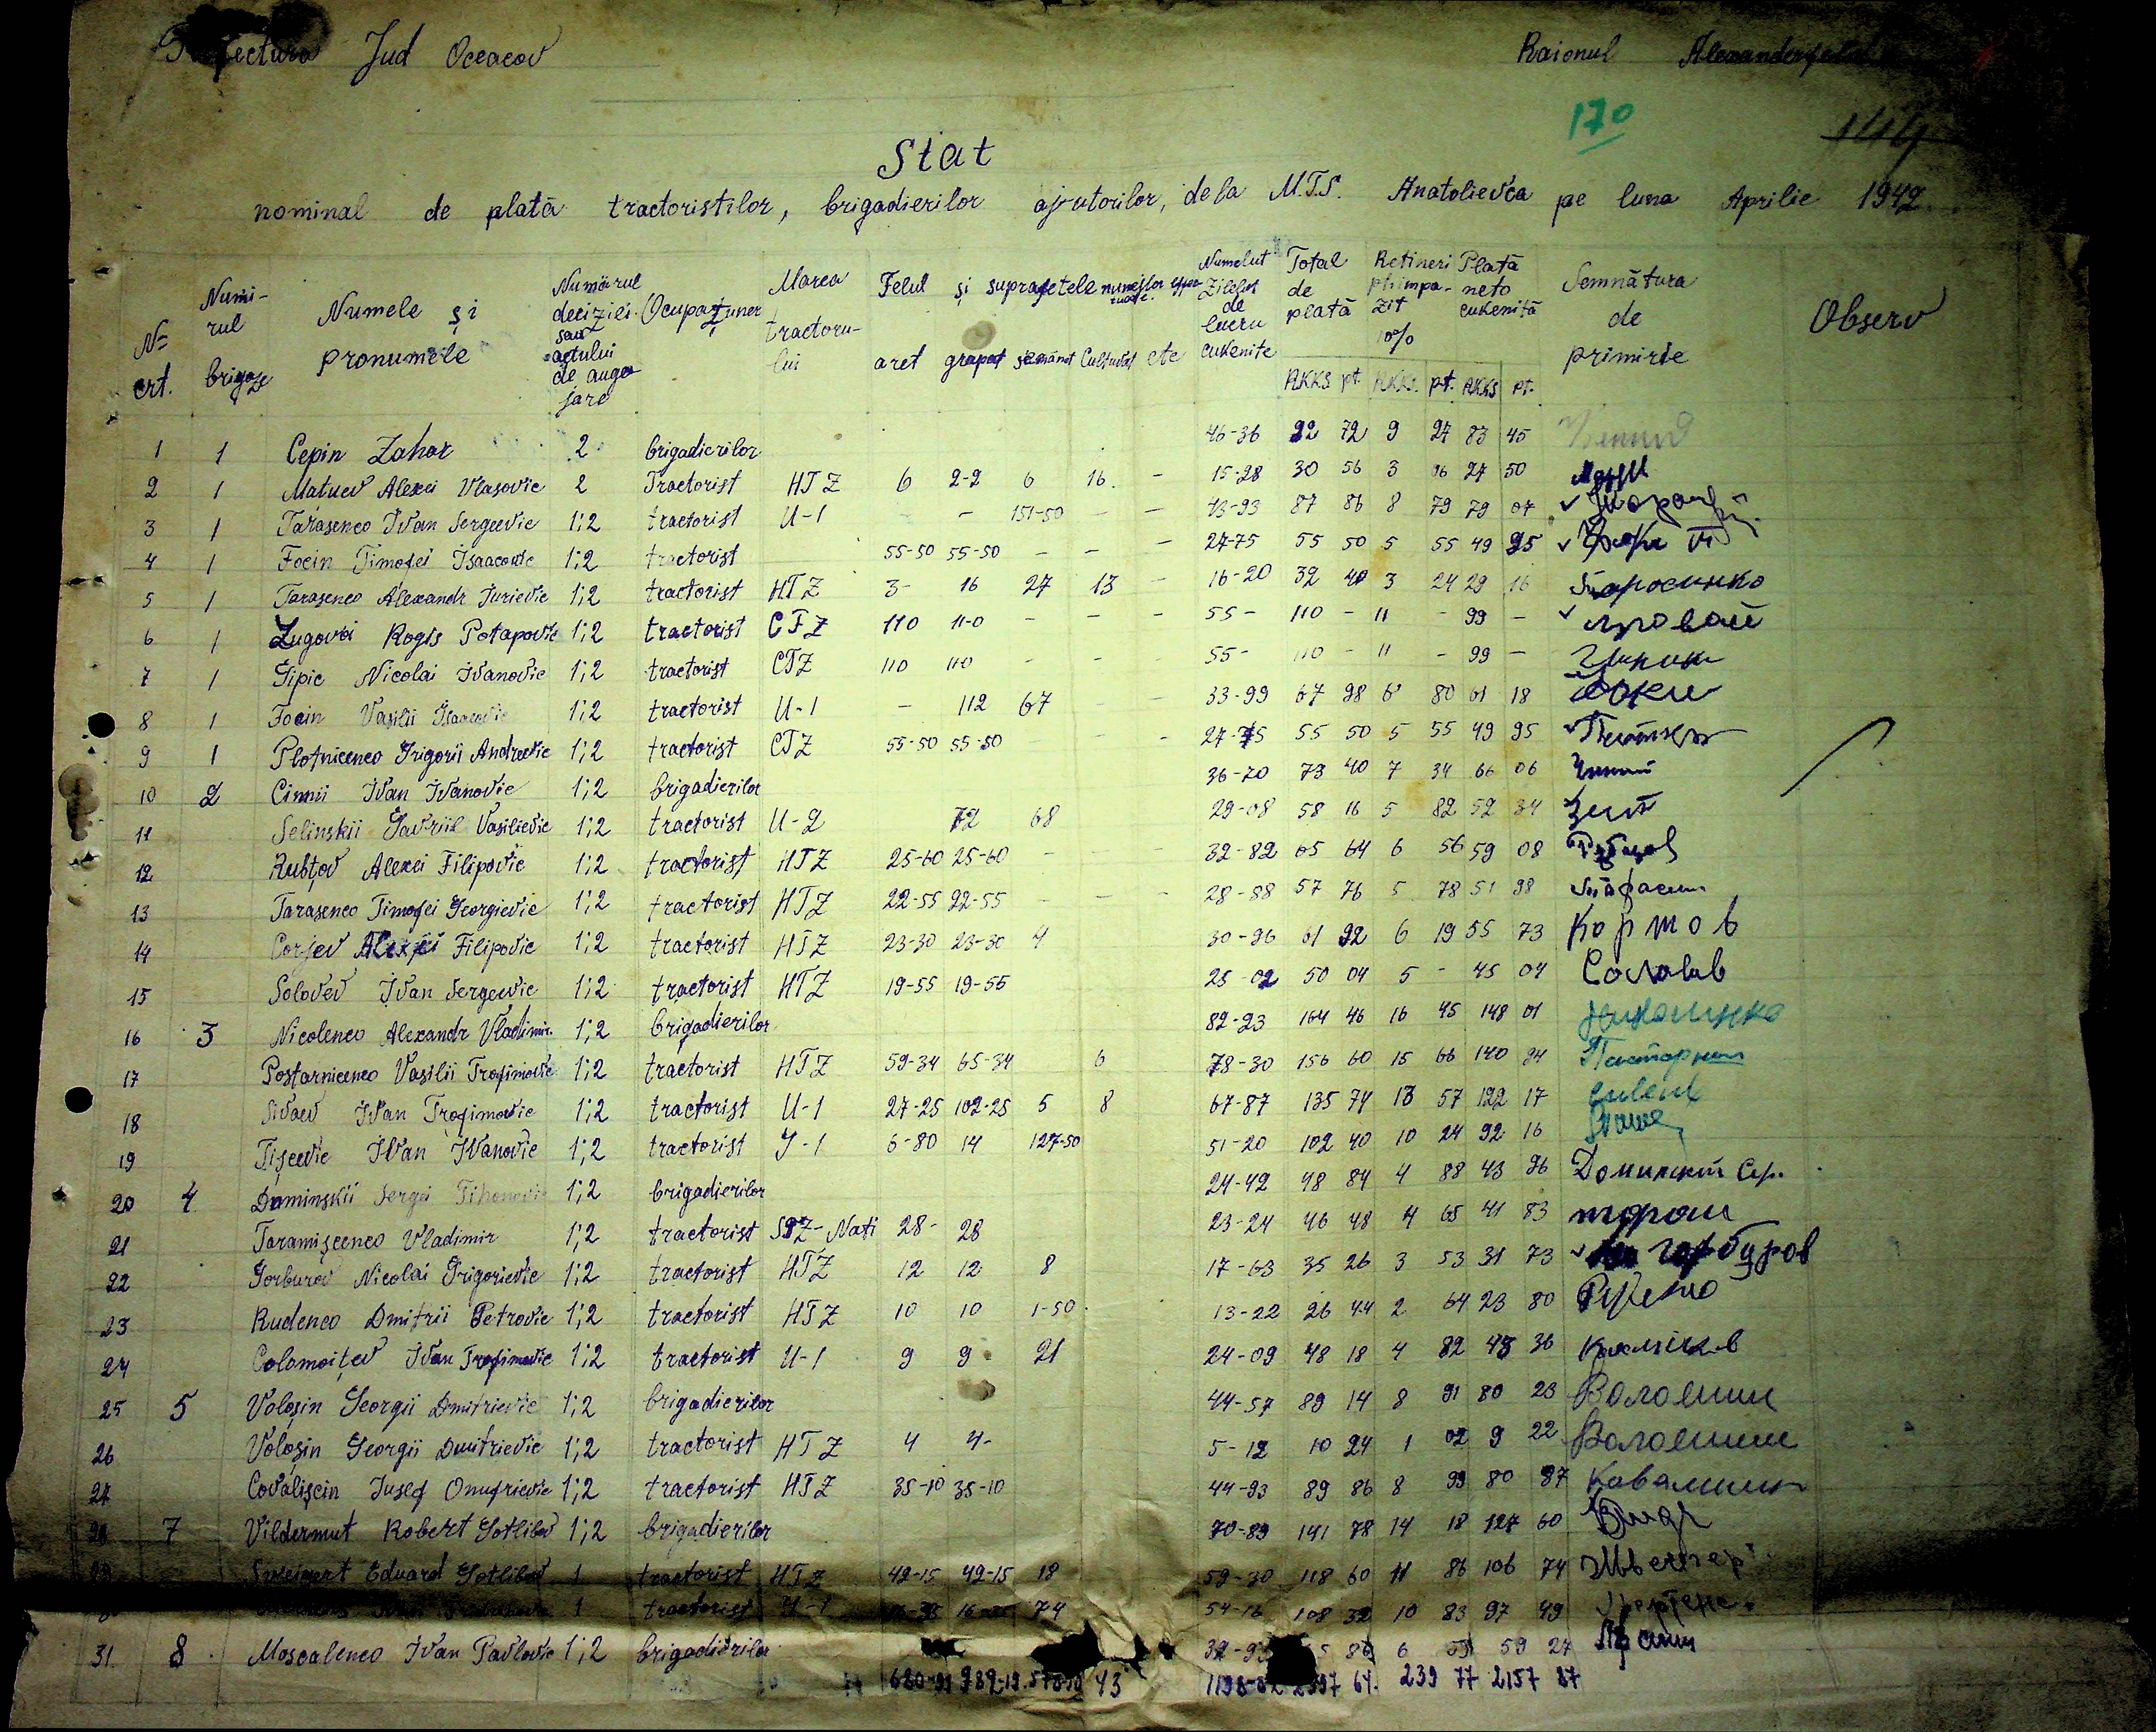 Jud Oceacov Raionul
170
144
Stat
nominal de plată tractoristilor, brigadierilor ajutorilor, de la M.T.S. Anatolievca pe luna Aprilie 1942
№ crt. Numi-rul brigaze Numele și pronumele Numărul deciziei sau actului de anga jare Ocupațuner Marca tractoru-lui Felul și suprafetele aret grapat semănat Cultivat etc Numelut Zilelor de lucru cuvenite Total de plată Retineri 10% Plată neto cuvenită Semnătura de primirie Observ
RKKS pt. RKKS. pt. RKKS pt.
1 1 Cepin Zahar 2 brigadierilor 46-36 92 72 9 27 83 45
2 1 Matuev Alexei Vlasovic 2 Tractorist HTZ 6 2-2 6 16. - 15-28 30 56 3 06 27 50
3 1 Tarasenco Ivan Sergeevic 1;2 tractorist U-1 - - 151-50 - - 43-93 87 86 8 79 79 07
4 1 Focin Timofei Isaacovic 1;2 tractorist 55-50 55-50 - - - 27-75 55 50 5 55 49 95
5 1 Tarasenco Alexandr Iurievic 1;2 tractorist HTZ 3- 16 27 13 - 16-20 32 40 3 24 29 16
6 1 Lugovoi Rogis Potapovic 1;2 tractorist CTZ 110 110 - - - 55- 110 - 11 - 99 -
7 1 Gipic Nicolai Ivanovic 1;2 tractorist CTZ 110 110 - - - 55- 110 - 11 - 99 -
8 1 Focin Vasilii Isaacovic 1;2 tractorist U-1 - 112 67 - - 33-99 67 98 6 80 61 18
9 1 Plotnicenco Grigorii Andreevic 1;2 tractorist CTZ 55-50 55-50 - - - 27-75 55 50 5 55 49 95
10 2 Cinnii Ivan Ivanovic 1;2 brigadierilor 36-70 73 40 7 34 66 06
11 Selinskii Gavriil Vasilievic 1;2 tractorist U-2 72 68 29-08 58 16 5 82 52 34
12 Rubțov Alexei Filipovic 1;2 tractorist HTZ 25-60 25-60 - - - 32-82 65 64 6 56 59 08
13 Tarasenco Timofei Georgievic 1;2 tractorist HTZ 22-55 22-55 - - - 28-88 57 76 5 78 51 98
14 Corjev Alexei Filipovic 1;2 tractorist HTZ 23-30 23-30 4 30-96 61 92 6 19 55 73
15 Solovev Ivan Sergeevic 1;2 tractorist HTZ 19-55 19-55 25-02 50 04 5 - 45 04
16 3 Nicolenco Alexandr Vladimir. 1;2 brigadierilor 82-23 164 46 16 45 148 01
17 Postarnicenco Vasilii Trofimovic 1;2 tractorist HTZ 59-34 65-34 6 78-30 156 60 15 66 140 94
18 Sivaev Ivan Trofimovic 1;2 tractorist U-1 27-25 102-25 5 8 67-87 135 74 13 57 122 17
19 Tișcevic Ivan Ivanovic 1;2 tractorist Y-1 6-80 14 127-50 51-20 102 40 10 24 92 16
20 4 Dominskii Sergei Tihonovic 1;2 brigadierilor 24-42 48 84 4 88 43 96 Доминский Сер.
21 Taramișcenco Vladimir 1;2 tractorist STZ-Nati 28- 28 23-24 46 48 4 65 41 83
22 Gorburov Nicolai Grigorievic 1;2 tractorist HTZ 12 12 8 17-63 35 26 3 53 31 73 горбуров
23 Rudenco Dmitrii Petrovic 1;2 tractorist HTZ 10 10 1-50 13-22 26 44 2 64 23 80
24 Colomoițev Ivan Trofimovic 1;2 tractorist U-1 9 9 21 24-09 48 18 4 82 43 36
25 5 Voloșin Georgii Dmitrievic 1;2 brigadierilor 44-57 89 14 8 91 80 23 Волошин
26 Voloșin Georgii Dmitrievic 1;2 tractorist HTZ 4 4- 5-12 10 24 1 02 9 22 Волошин
27 Covalișcin Iusef Onufrievic 1;2 tractorist HTZ 35-10 35-10 44-93 89 86 8 99 80 87
28 7 Vildermut Robert Gotlibov 1;2 brigadierilor 70-89 141 78 14 18 127 60
29 Sveigert Eduard Gotlibov 1 tractorist HTZ 42-15 42-15 18 59-30 118 60 11 86 106 74
1 tractorist Y-1 74 54-16 108 32 10 83 97 49
31 8 Moscalenco Ivan Pavlovic 1;2 brigadierilor 86 6 59 59 27
43 64. 239 77 2157 87